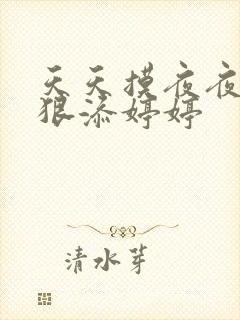 天天摸夜夜
狠添婷婷
清水芽